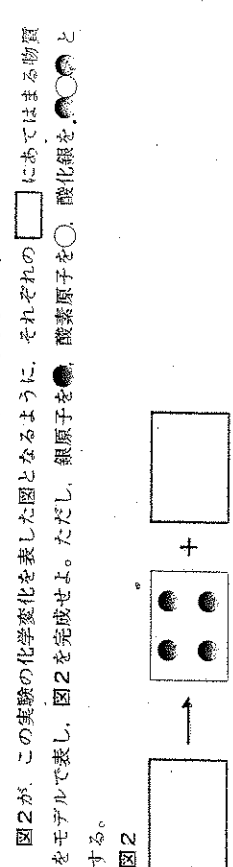 図2が，この実験の化学変化を表した図となるように，それぞれの□にあてはまる物質
をモデルで表し，図2を完成せよ。ただし，銀原子を●，酸素原子を○，酸化銀を●○●と
する。
図2
→ +